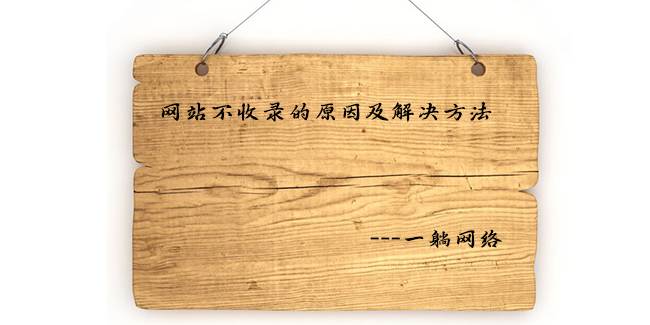 网站不收录的原因及解决方法
---一躺网络